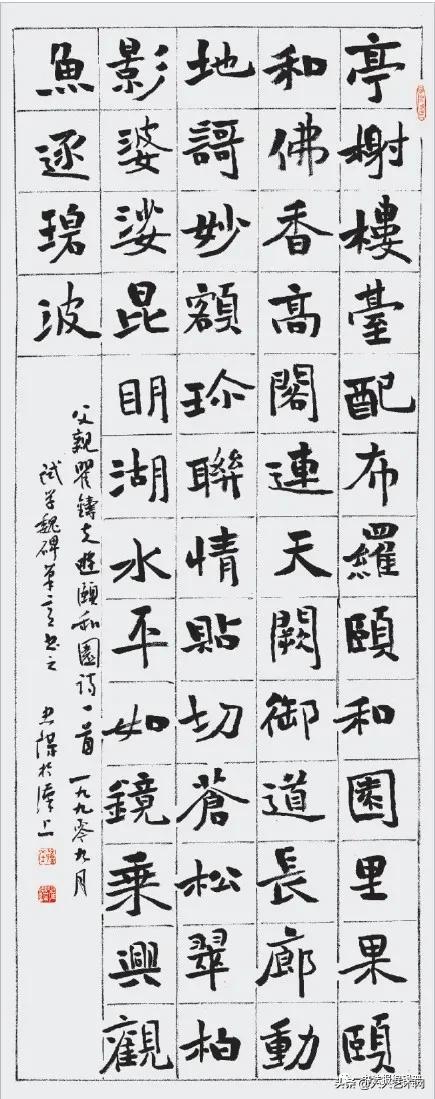 亭榭樓臺配布羅頤和園里果頤
和佛香高閣連天闕御道長廊動
地謌妙額珍聯情貼切蒼松翠柏
影婆娑昆眀湖水平如鏡乘興觀
魚逐碧波
父親瞿鑄 遊頤和園詩一首 一九九零九月
試学魏碑筆意書之 於滬上